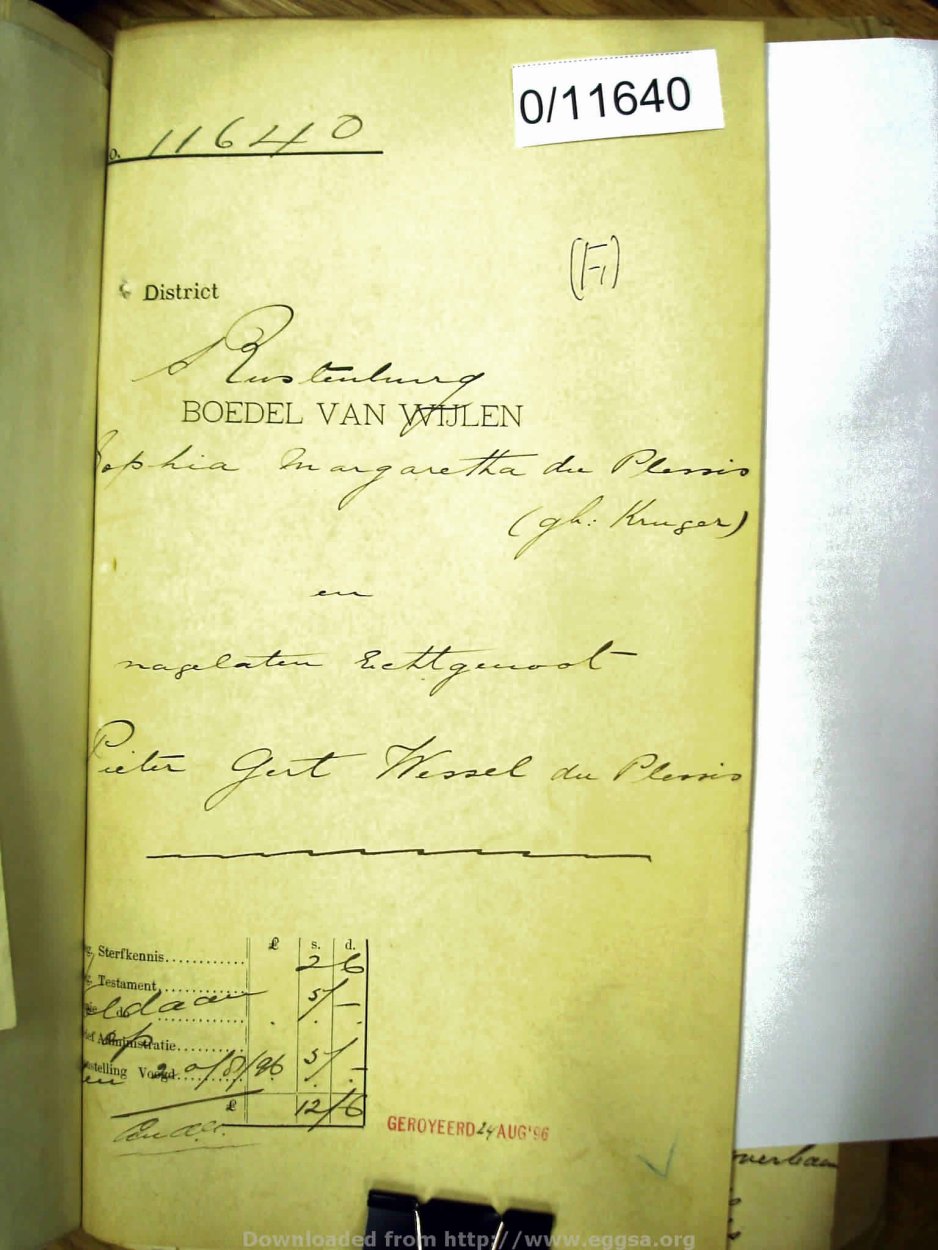 0/11640
o. 11640
(F)
District
Rustenburg
BOEDEL VAN WIJLEN
Sophia Margaretha du Plessis
(gb: Kruger)
en
nagelaten Echtgenoot
Pieter Gert Wessel du Plessis
£ s. d.
g. Sterfkennis............ 2 6
g. Testament............ 5/-
do
ef Administratie.......... 5/-
stelling Voogd
voldaan
op
20/8/96
£ 12/6
GEROYEERD 24 AUG '96
Downloaded from http://www.eggsa.org